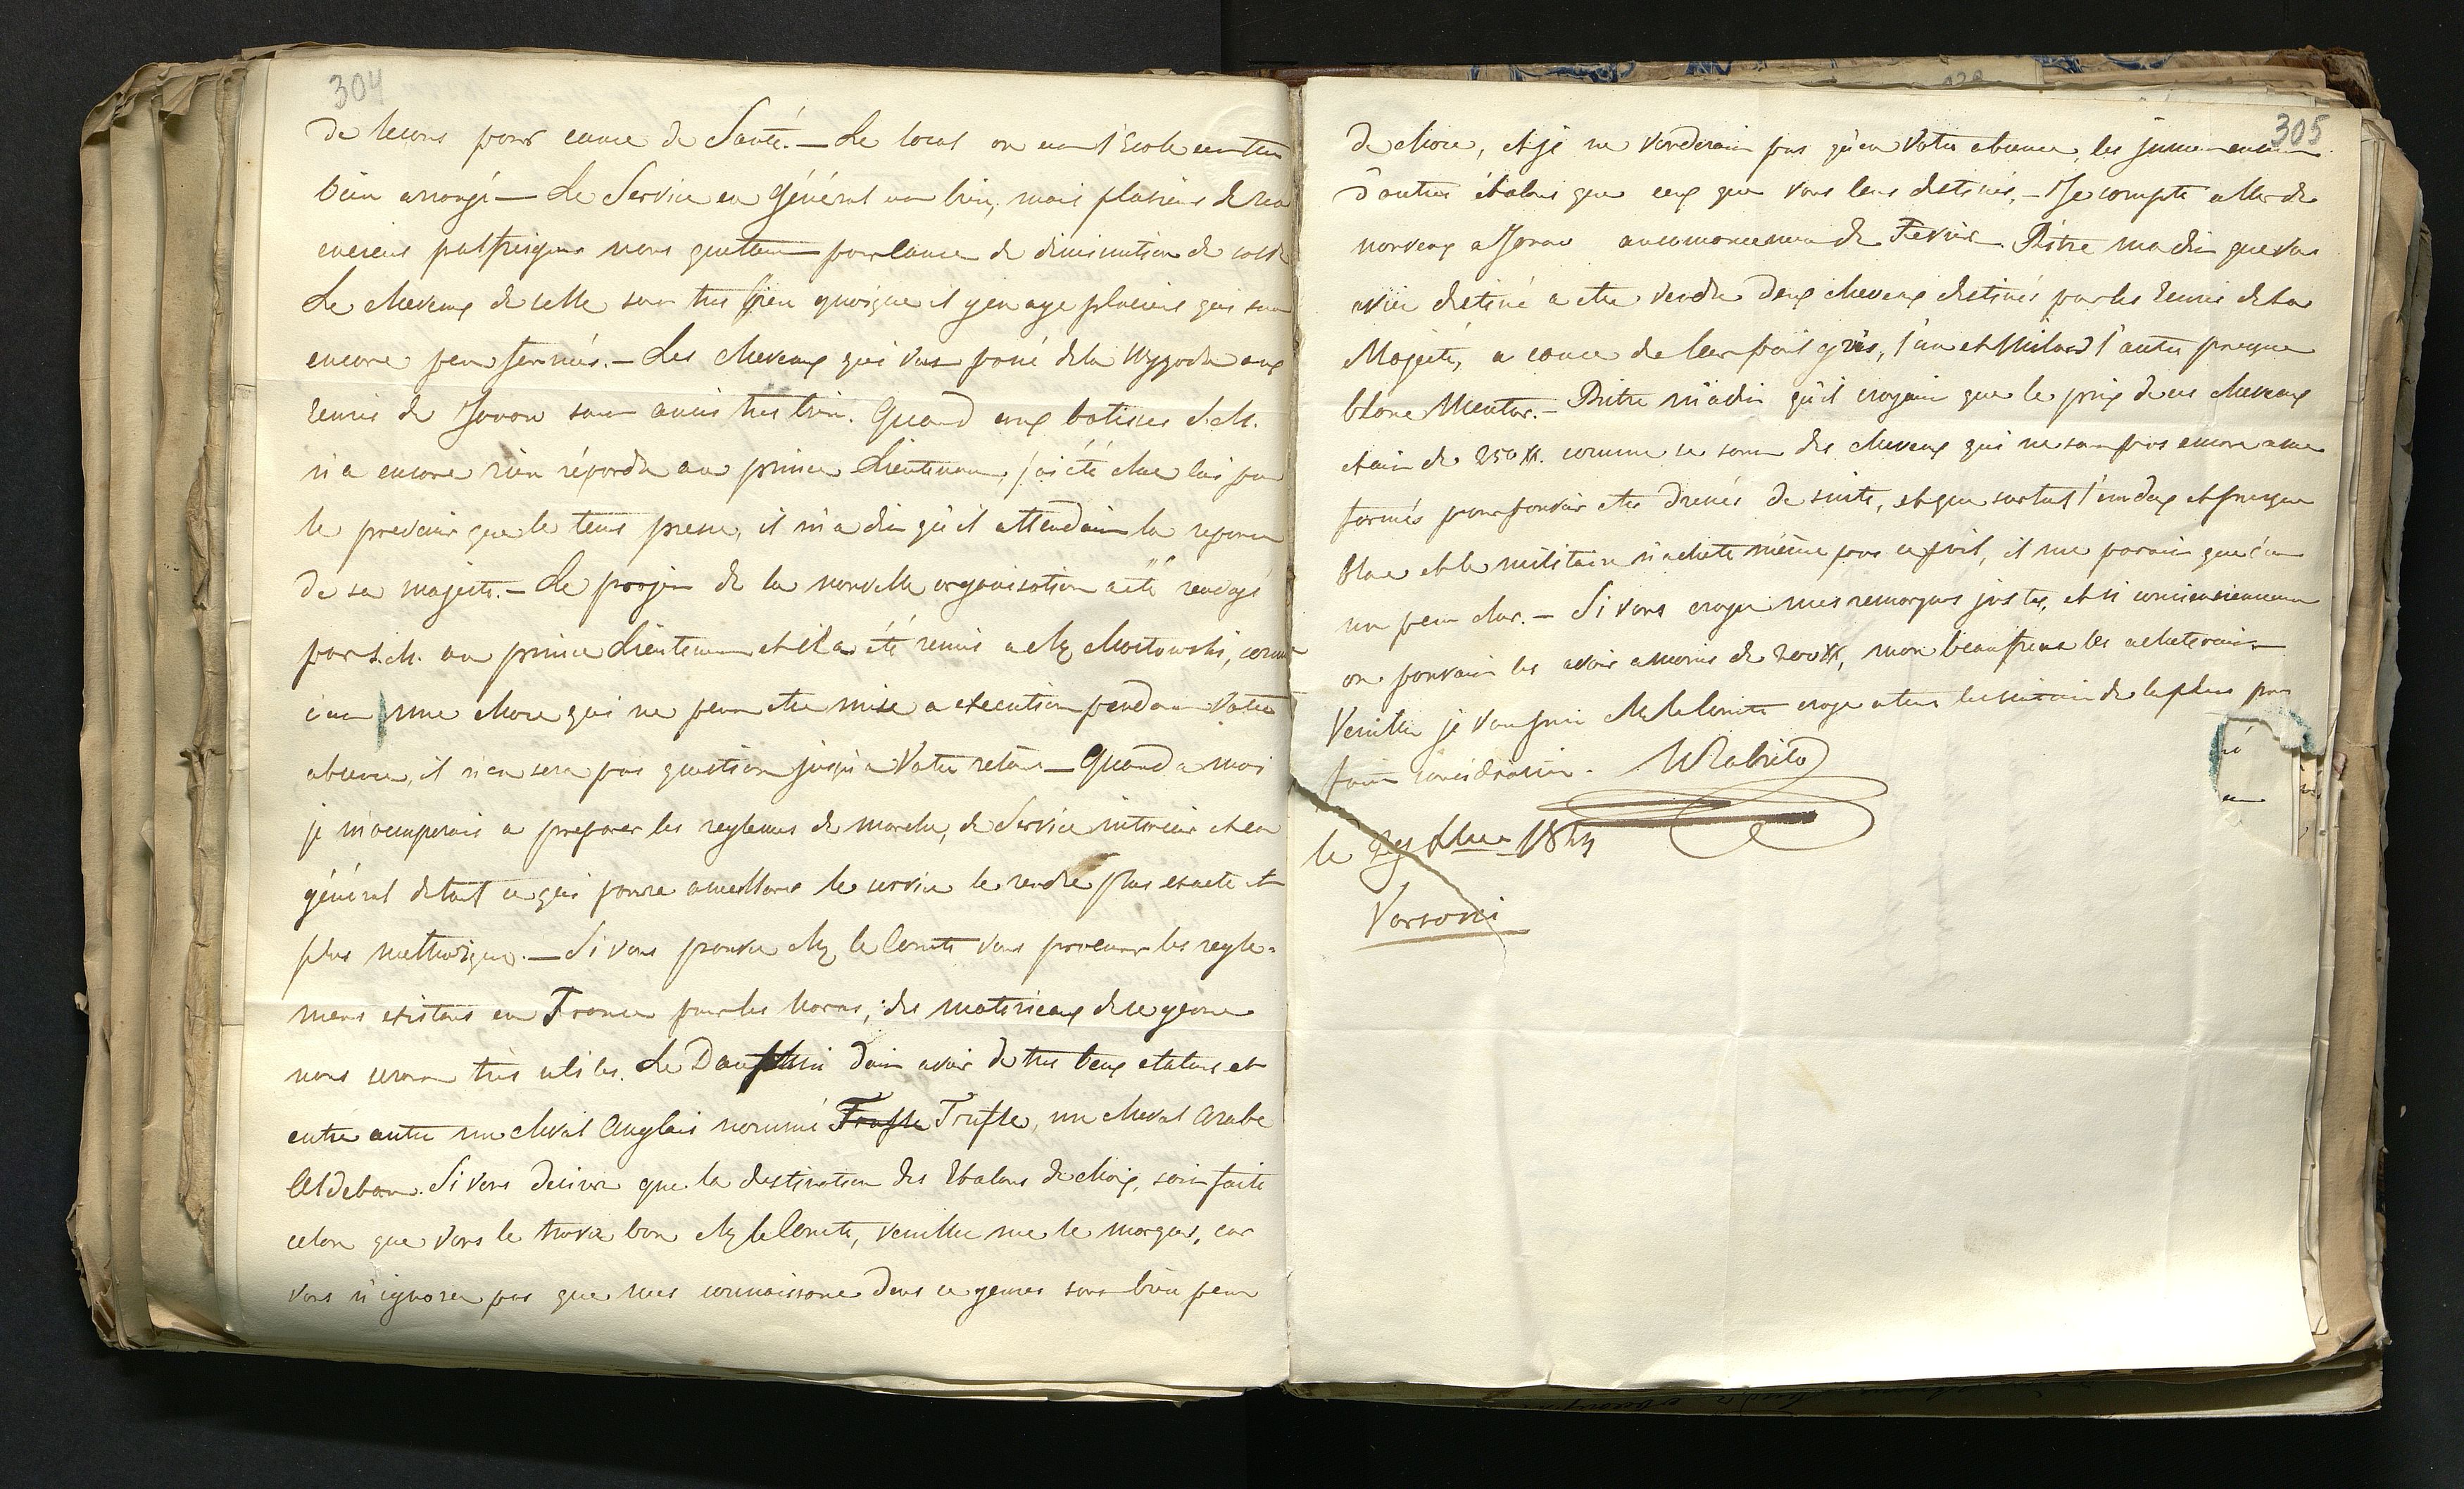 304
de lecons pour cause de Santé. — Le local ou est l'Ecole est tres
bien arrangé — Le Service en général va bien, mais plusieurs de nos
palfreniers nous quittent pour cause de diminution de solde
Le chevaux de selle sont tres bien quoique il y en aye plusieurs qui sont
encore peu formés. — Les chevaux qui vous passé de la Wygoda aux
ecuries de Janow sont aussi tres bien. Quand aux batisses S.M.
n'a encore rien répondu au prince Lieutenant, j'ai été chez lui pour
le prevenir que le tems presse, il m'a dit qu'il attendait la reponse
de sa majesté. — Le projet de la nouvelle organisation a été
par S.M. au prince Lieutenant et il a été remis a Mr Mostowski, comme
c'est une chose qui ne peut etre mise a execution pendant Votre
absence, il n'en sera pas question jusqu'a Votre retour — Quand a moi
je m'occuperais a preparer les reglemens de marche, de Service interieur et en
général de tout ce qui pourra ameilloré le service le rendre plus exacte et
plus methodique. — Si vous pouvez Mr le Comte vous procurer les regle-
mens existans en France pour les haras, des materieaux de ce genre
nous seront très utiles. Le Dauphin doit avoir de tres beaux etalons et
entre autre un cheval Anglais nommé Truffle Truffle, un cheval Arabe
Aldebaran. Si vous desirez que la destination des Etalons de choix, soit faite
celon que vous le trouvez bon Mr le Comte, veuillez me le marquer, car
vous n'ignorez pas que mes connaissance dans ce genres sont bien peu
305
de chose, et je ne voudrais pas qu'en Votre absence, les jumens
d'autres étalons que ceux que vous leurs destinés, — Je compte aller de
nouveau a Janow au commencement de Fevrier. Pitre m'a dit que vous
aviez destiné a etre vendu deux chevaux destinés pour les Ecuries de La
Majesté, a cause de leur poil gris, l'un est Milord l'autre presque
blanc Mentor. — Pitre m'a dit qu'il croyait que le prix de ces chevaux
etait de 250 #. comme ce sont des chevaux qui ne sont pas encore assez
formés pour pouvoir etre dressés de suite, et que surtout l'un deux est presque
blanc et le militaire n'achete même pas ce poil, il me parait que c'est
un peu cher. — Si vous croyez mes remarques justes, et si
on pouvait les avoir a moins de 200 #, mon beaufrere les acheterait
Veuillez je vous prie Mr le Comte croyez a tous les de la plus par
faite consideration.
le 1824
Varsovie